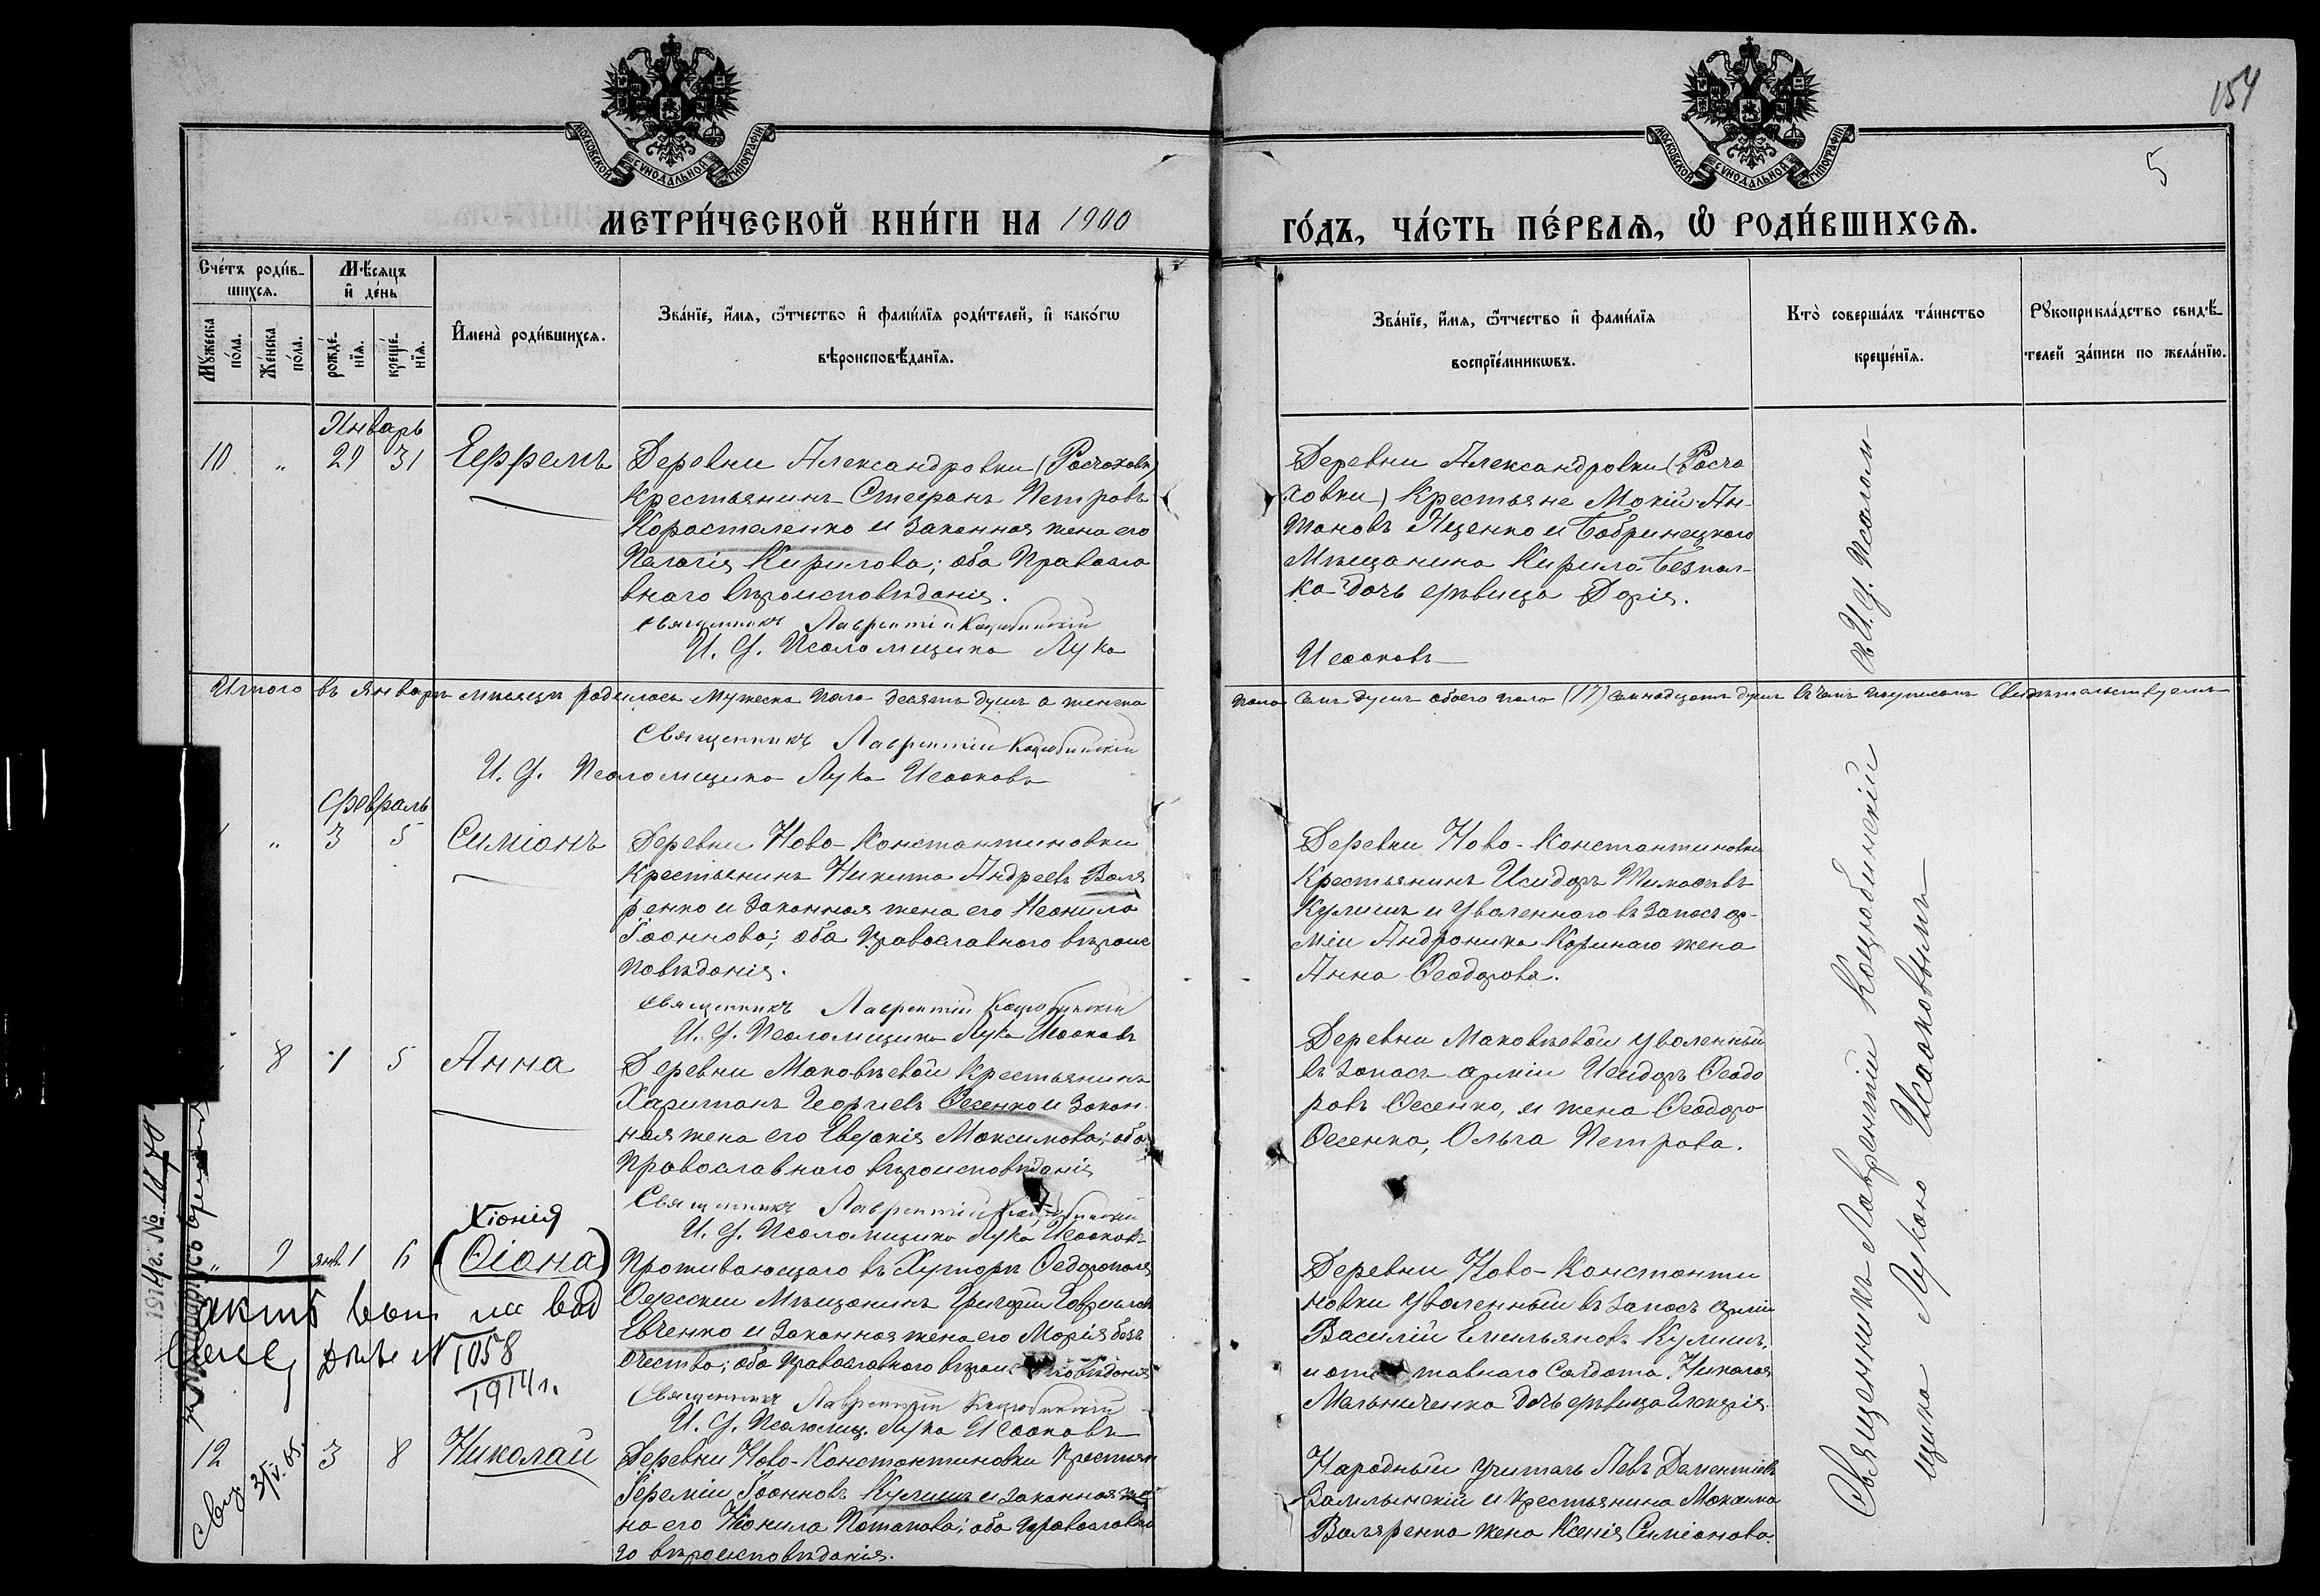 154
5
МОСКОВСКОЙ СѴНОДАЛЬНОЙ ТИПОГРАФІИ
МОСКОВСКОЙ СѴНОДАЛЬНОЙ ТИПОГРАФІИ
МЕТРИ́ЧЕСКОЙ КНИ́ГИ НА 1900
ГО́ДЪ, ЧА́СТЬ ПЕ́РВАѦ, Ѽ РОДИ́ВШИХСѦ.
Сче́тъ роди́в-
шихсѧ.
Мѣ́сяцъ
и҆ де́нь
Мꙋ́жеска
по́ла.
Же́нска
по́ла.
рожде́-
нїѧ.
креще́-
нїѧ.
И҆мена̀ роди́вшихсѧ.
Зва́нїе, и҆́мѧ, ѻ҆́тчество и҆ фами́лїѧ роди́телей, и҆ како́гѡ
вѣроисповѣ́данїѧ.
Зва́нїе, и҆́мѧ, ѻ҆́тчество и҆ фами́лїѧ
воспрїе́мникѡвъ.
Кто̀ соверша́лъ та́инство
креще́нїѧ.
Рꙋкоприкла́дство свидѣ́-
телей за́писи по жела́нїю.
Январь
10 " 29 31 Ефремъ
Деревни Александровки (Росоховки)
Крестьянинъ Стефанъ Петровъ
Коростеленко и законная жена его
Пелагія Кирилова; оба Правосла
внаго вѣроисповѣданія.
Священникъ Лаврентій Коцюбинскій
И. д. Псаломщика Лука
Деревни Александровки (Росо
ховки) Крестьяне Мокій Ан-
тоновъ Яценко и Бобринецкаго
Мѣщанина Кирила Безпал-
ка дочь дѣвица Дарія.
Исааковъ
Итого въ Январѣ мѣсяцѣ родилось Мужеска пола десять душъ а женска
пола семь душъ обоего пола (17) семнадцать душъ въ чемъ подписомъ Свидѣтельствуемъ
Священникъ Лаврентій Коцюбинскій
И. д. Псаломщика Лука Исааковъ
Февраль
" 3 5 Симіонъ
Деревни Ново-Константиновки
Крестьянинъ Никита Андреевъ Валя
ренко и Законная жена его Неонила
Іоаннова; оба Православнаго вѣроис
повѣданія.
Священникъ Лаврентій Коцюбинскій
И. д. Псаломщика Лука Исааковъ
Деревни Ново-Константиновки
Крестьянинъ Исидоръ Тимоѳеевъ
Кулишъ и Уволеннаго въ Запасъ ар-
міи Андроника Коринаго жена
Анна Ѳеодорова.
8 1 5 Анна
Деревни Маковѣевой Крестьянинъ
Харитонъ Георгіевъ Ѳесенко и Закон
ная жена его Евдокія Максимова; оба
Православнаго вѣроисповѣданія
Священникъ Лаврентій Коцюбинскій
И. д. Псаломщика Лука Исааковъ
Деревни Маковѣевой Уволенный
въ Запасъ арміи Исидоръ Ѳеодо
ровъ Ѳесенко, и жена Ѳеодора
Ѳесенка, Ольга Петрова.
Хіонія
" 9 янв. 1 6 (Ѳіона)
Проживающаго въ Хуторѣ Ѳедорополя
Одесскій Мѣщанинъ Григорій Гавриловъ
Евченко и Законная жена его Марія безъ
отчества; оба Православнаго вѣроисповѣданія
Священникъ Лаврентій Коцюбинскій
И. д. Псаломщ. Лука Исааковъ
Деревни Ново-Константи
новки Уволенный въ Запасъ арміи
Василій Емельяновъ Кулишъ,
и отставнаго Солдата Николая
Мельниченка дочь дѣвица Гликерія.
1914 г. №
N 1058
1914 г.
12 3 8 Николай
31/V.65.
Деревни Ново-Константиновки Крестьян
Іеремія Іоанновъ Кулишъ и законная же
на его Неонила Потапова; оба Православна
го вѣроисповѣданія.
Народный учитель Левъ Дементіевъ
и крестьянина Максима
Валяренка жена Ксенія Симіонова.
Священникъ Лаврентій Коцюбинскій съ И. д. Псалом
щика Лукою Исааковымъ